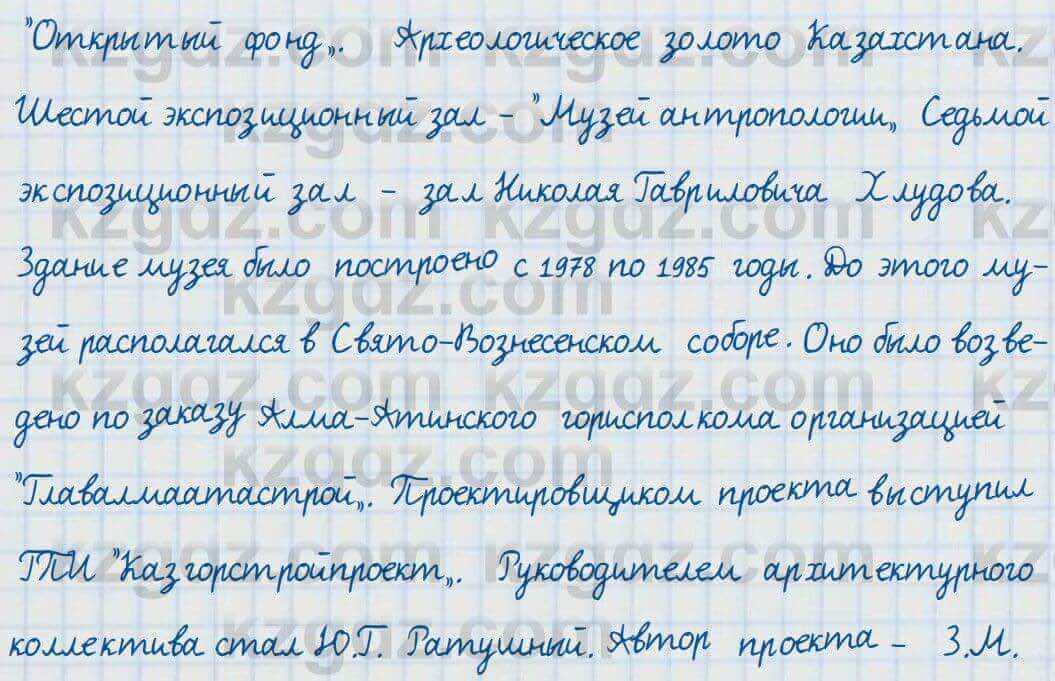 "Открытый фонд„. Археологическое золото Казахстана.
Шестой экспозиционный зал - "Музей антропологии„ Седьмой
экспозиционный зал - зал Николая Гавриловича Хлудова.
Здание музея было построено с 1978 по 1985 годы. До этого му-
зей располагался в Свято-Вознесенском соборе. Оно было возве-
дено по заказу Алма-Атинского горисполкома организацией
"Главалмаатастрой„. Проектировщиком проекта выступил
ГПИ "Казгорстройпроект„. Руководителем архитектурного
коллектива стал Ю.Г. Ратушный. Автор проекта - З.М.